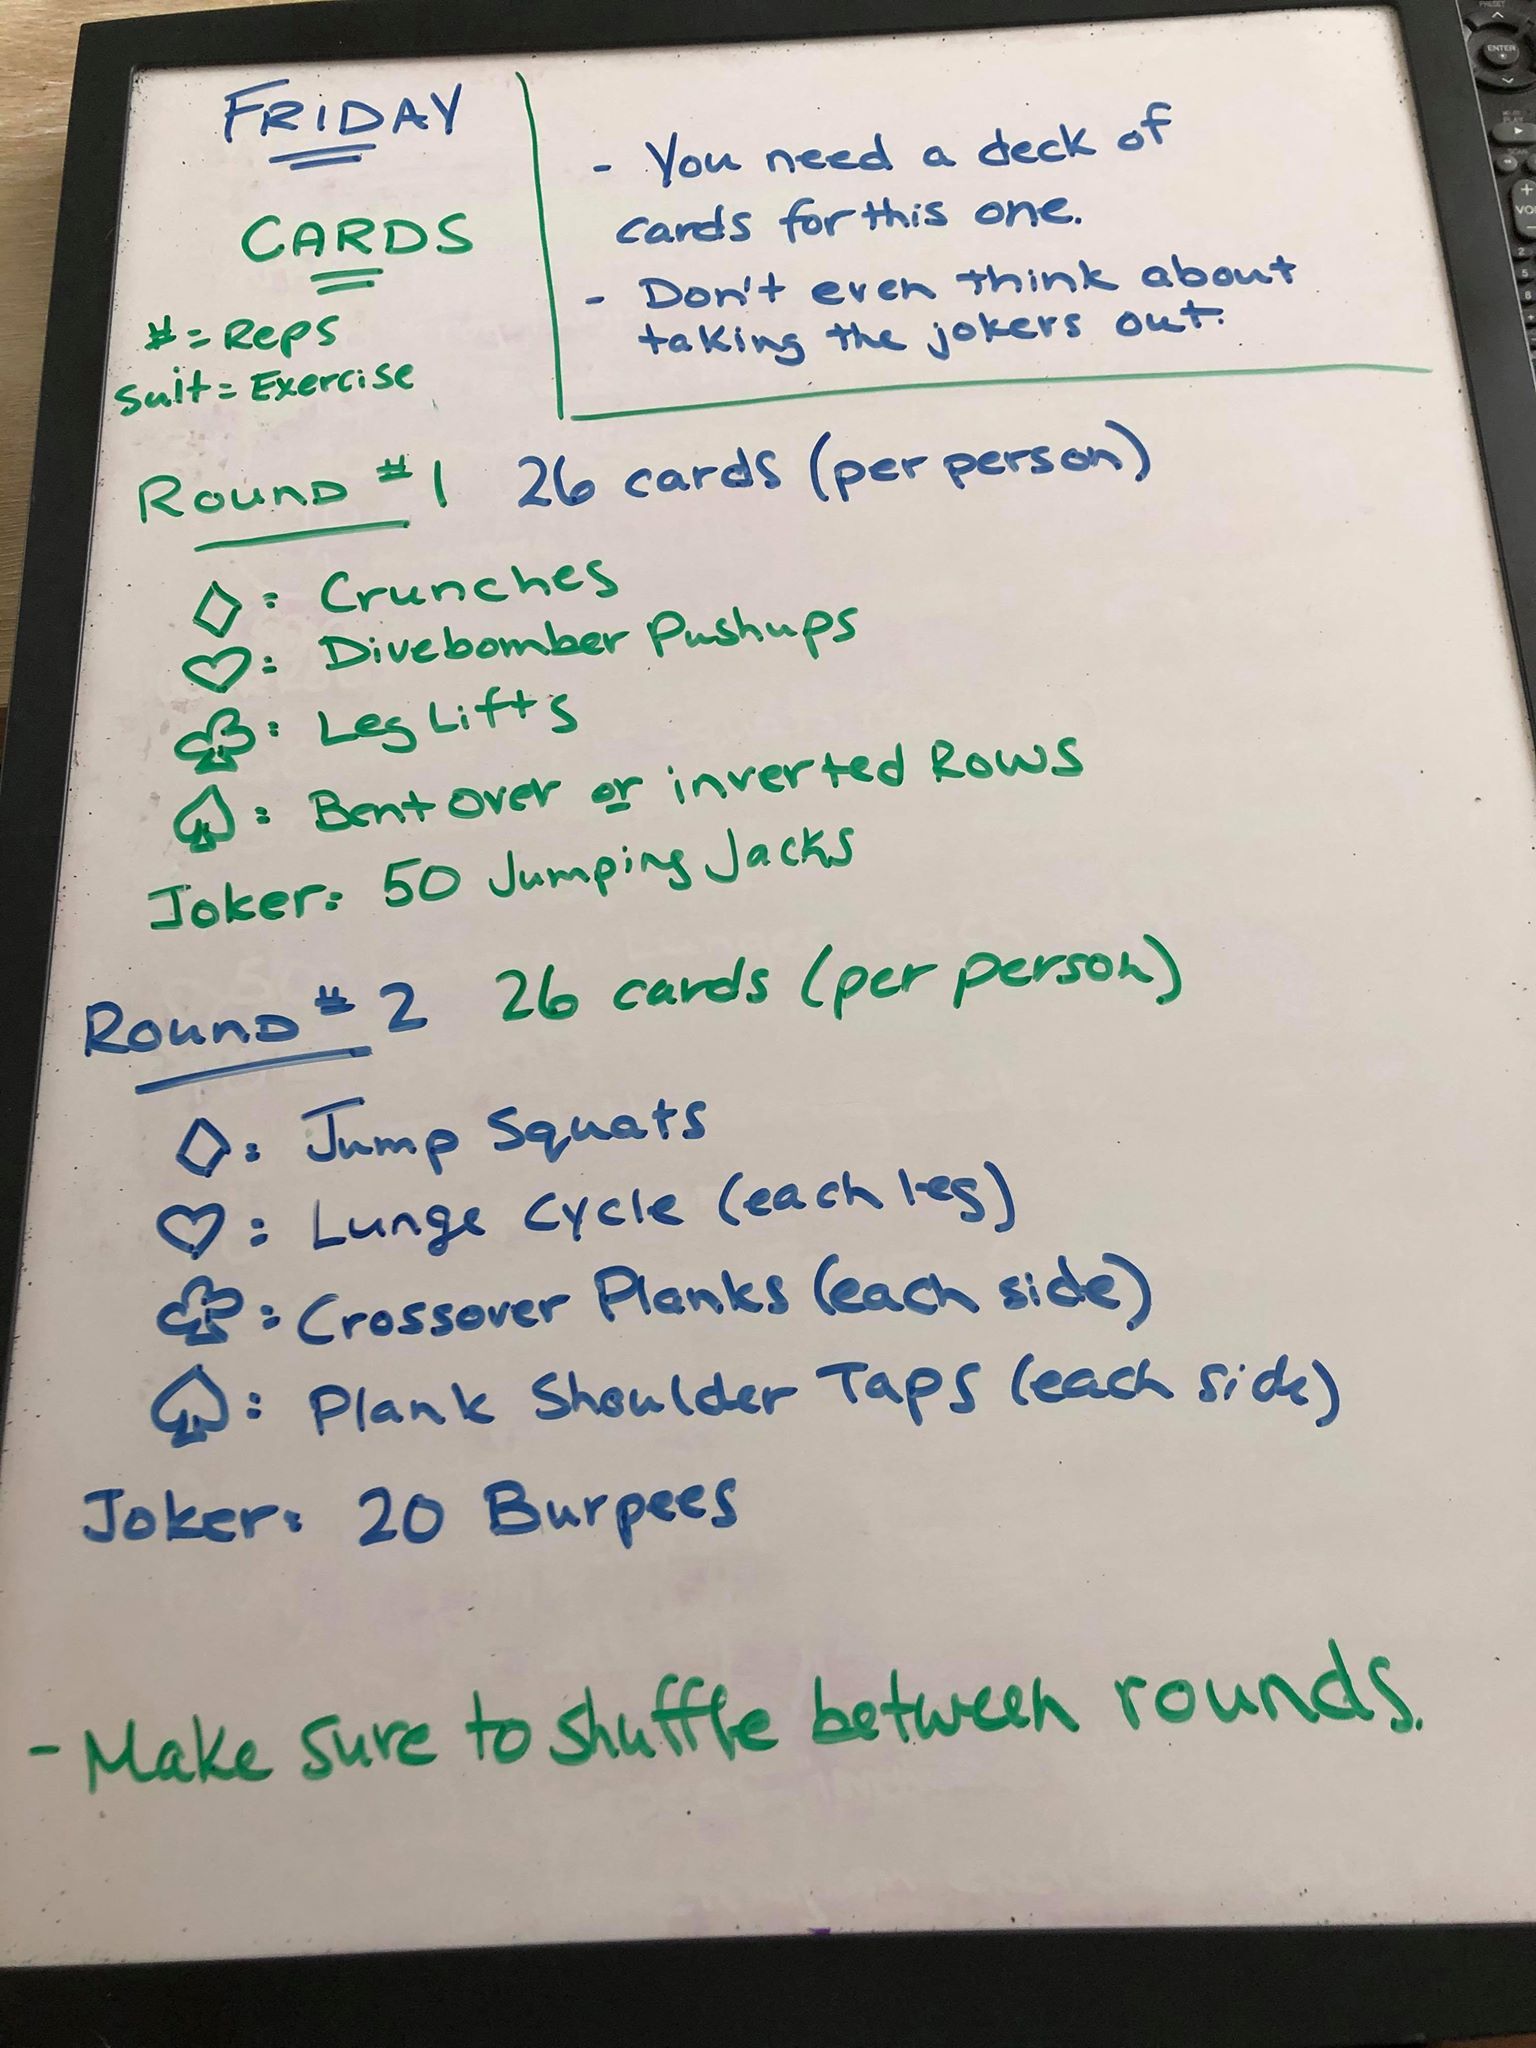 FRIDAY
CARDS
# = Reps
Suit = Exercise
- You need a deck of
cards for this one.
- Don't even think about
taking the jokers out.
Round #1 26 cards (per person)
♢: Crunches
♡: Divebomber Pushups
♧: Leg Lifts
♤: Bent over or inverted Rows
Joker: 50 Jumping Jacks
Round #2 26 cards (per person)
♢: Jump Squats
♡: Lunge Cycle (each leg)
♧: Crossover Planks (each side)
♤: Plank Shoulder Taps (each side)
Joker: 20 Burpees
- Make sure to shuffle between rounds.
PRESET
ENTER
VOL